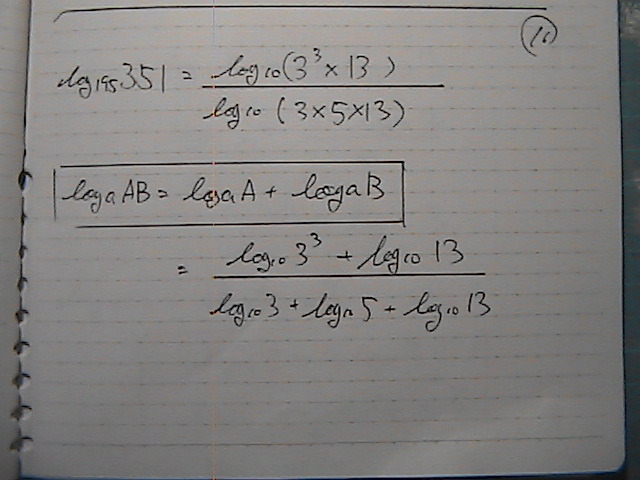 16
log₁₉₅351 = log₁₀(3³×13) / log₁₀(3×5×13)
logₐAB = logₐA + logₐB
= log₁₀3³ + log₁₀13 / log₁₀3 + log₁₀5 + log₁₀13